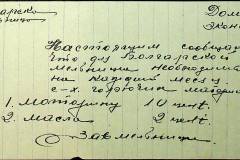 Дом
Экон
Настоящим сообщаем
что для Болгарской
мельницы необходимо
на каждый месяц
с-х. горючих материал
1. моторину 10 цент.
2. масла 2 цент.
Зав. мельницы